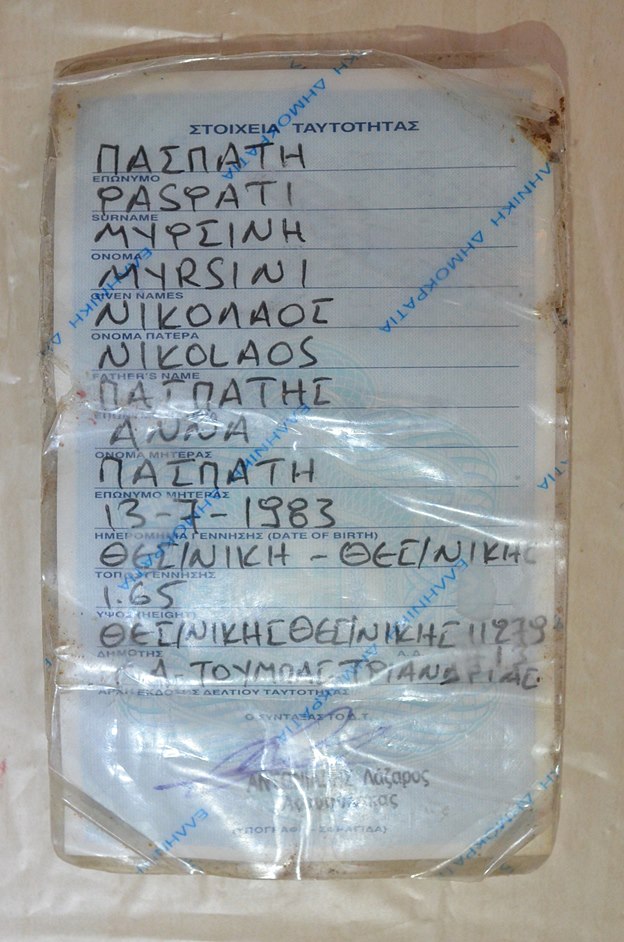 ΣΤΟΙΧΕΙΑ ΤΑΥΤΟΤΗΤΑΣ
ΠΑΣΠΑΤΗ
ΕΠΩΝΥΜΟ
PASPATI
SURNAME
ΜΥΡΣΙΝΗ
ΟΝΟΜΑ
MYRSINI
GIVEN NAMES
ΝΙΚΟΛΑΟΣ
ΟΝΟΜΑ ΠΑΤΕΡΑ
NIKOLAOS
FATHER'S NAME
ΠΑΣΠΑΤΗΣ
ΑΝΝΑ
ΟΝΟΜΑ ΜΗΤΕΡΑΣ
ΠΑΣΠΑΤΗ
ΕΠΩΝΥΜΟ ΜΗΤΕΡΑΣ
13-7-1983
ΗΜΕΡΟΜΗΝΙΑ ΓΕΝΝΗΣΗΣ (DATE OF BIRTH)
ΘΕΣ/ΝΙΚΗ - ΘΕΣ/ΝΙΚΗΣ
ΤΟΠΟΣ ΓΕΝΝΗΣΗΣ
1.65
ΥΨΟΣ (HEIGHT)
ΘΕΣ/ΝΙΚΗΣ ΘΕΣ/ΝΙΚΗΣ 11279
ΔΗΜΟΤΗΣ Α.Α. 13
Α. ΤΟΥΜΠΑΣ ΤΡΙΑΝΔΡΙΑΣ
ΑΡΧΗ ΕΚΔΟΣΗΣ ΔΕΛΤΙΟΥ ΤΑΥΤΟΤΗΤΑΣ
Ο ΣΥΝΤΑΞΑΣ ΤΟ Δ.Τ.
Λάζαρος
(ΥΠΟΓΡΑΦΗ - ΣΦΡΑΓΙΔΑ)
ΕΛΛΗΝΙΚΗ ΔΗΜΟΚΡΑΤΙΑ